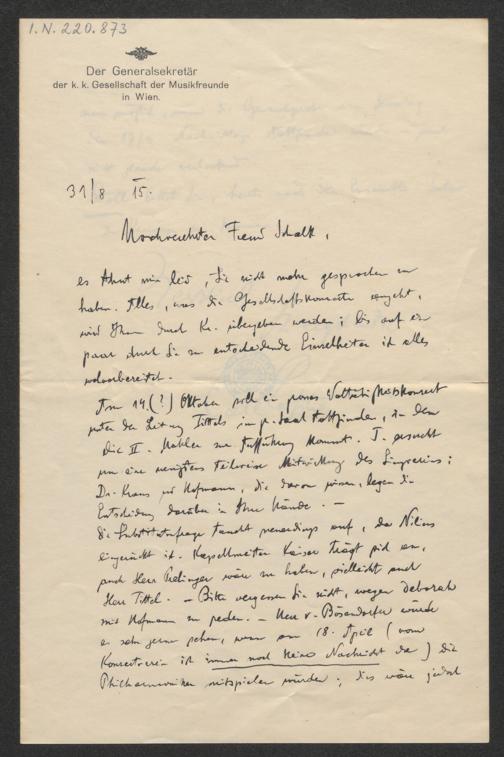 I.N. 220.873
Der Generalsekretär
der k. k. Gesellschaft der Musikfreunde
in Wien.
31/8 15.
Hochverehrter Freund Schalk,
es thut mir leid, Sie nicht mehr gesprochen zu
haben. Alles, was die Gesellschaftskonzerte angeht,
wird Ihnen durch Kr. übergeben werden; bis auf ein
paar durch Sie zu entscheidende Einzelheiten ist alles
vorbereitet.
Am 14. (?) Oktober soll ein grosses Wohltätigkeitskonzert
unter der Leitung Tittels im gr. Saal stattfinden, in dem
die II. Mahler zur Aufführung kommt. T. ersucht
um eine wenigstens teilweise Mitwirkung des Singvereins;
Dr. Kraus und Hofmann, die davon wissen, legen die
Entscheidung darüber in Ihre Hände. —
Die Substitutenfrage taucht neuerdings auf, da Nilius
eingerückt ist. Kapellmeister Kaiser trägt sich an,
auch Herr wäre zu haben, vielleicht auch
Herr Tittel. — Bitte vergessen Sie nicht, wegen Deborah
mit Hofmann zu reden. — Herr v. Bösendorfer würde
es sehr gerne sehen, wenn am 18. April (vom
Konzertverein ist immer noch keine Nachricht da) die
Philharmoniker mitspielen würden; dies wäre jedoch